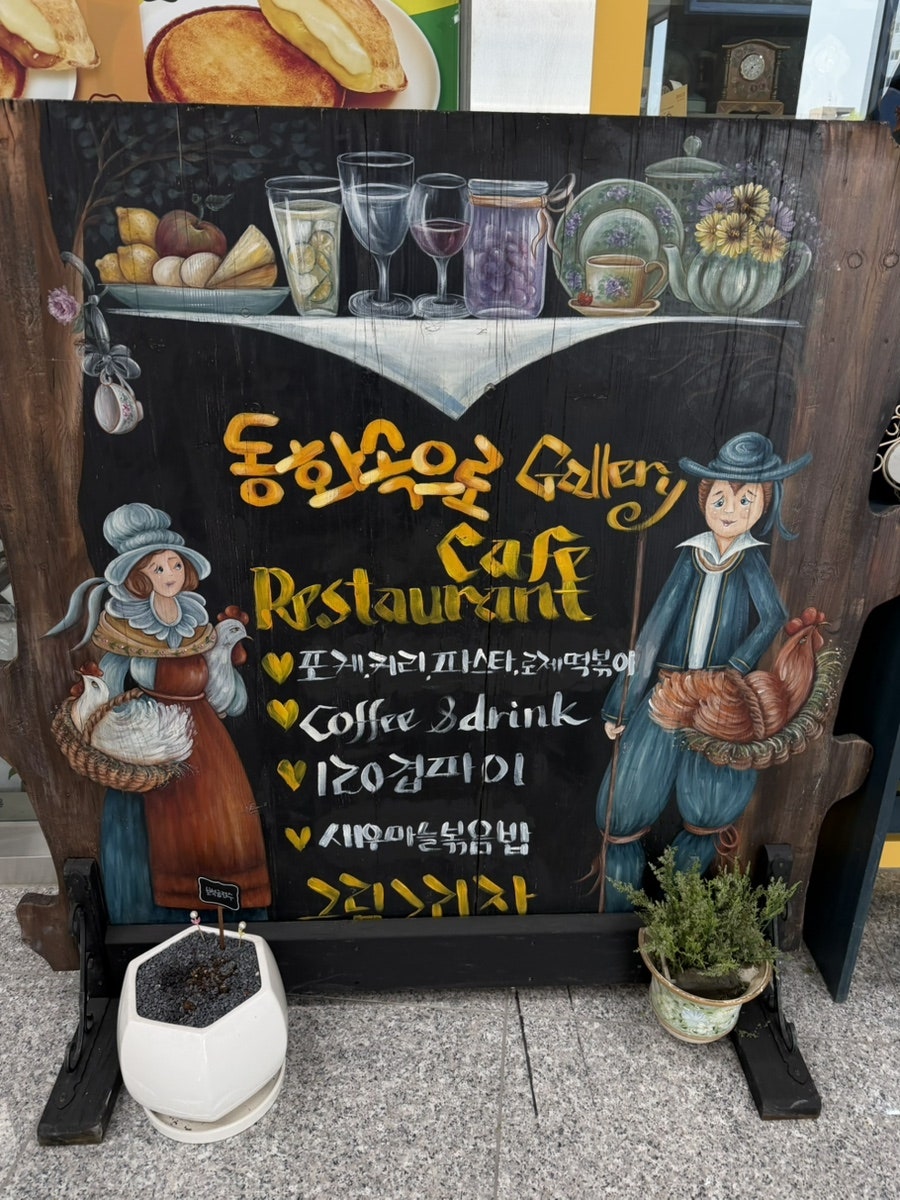 동화속으로 Gallery
Cafe
Restaurant
포케,커리,파스타,로제떡볶이
Coffee & drink
120겹파이
새우마늘볶음밥
그린그리자